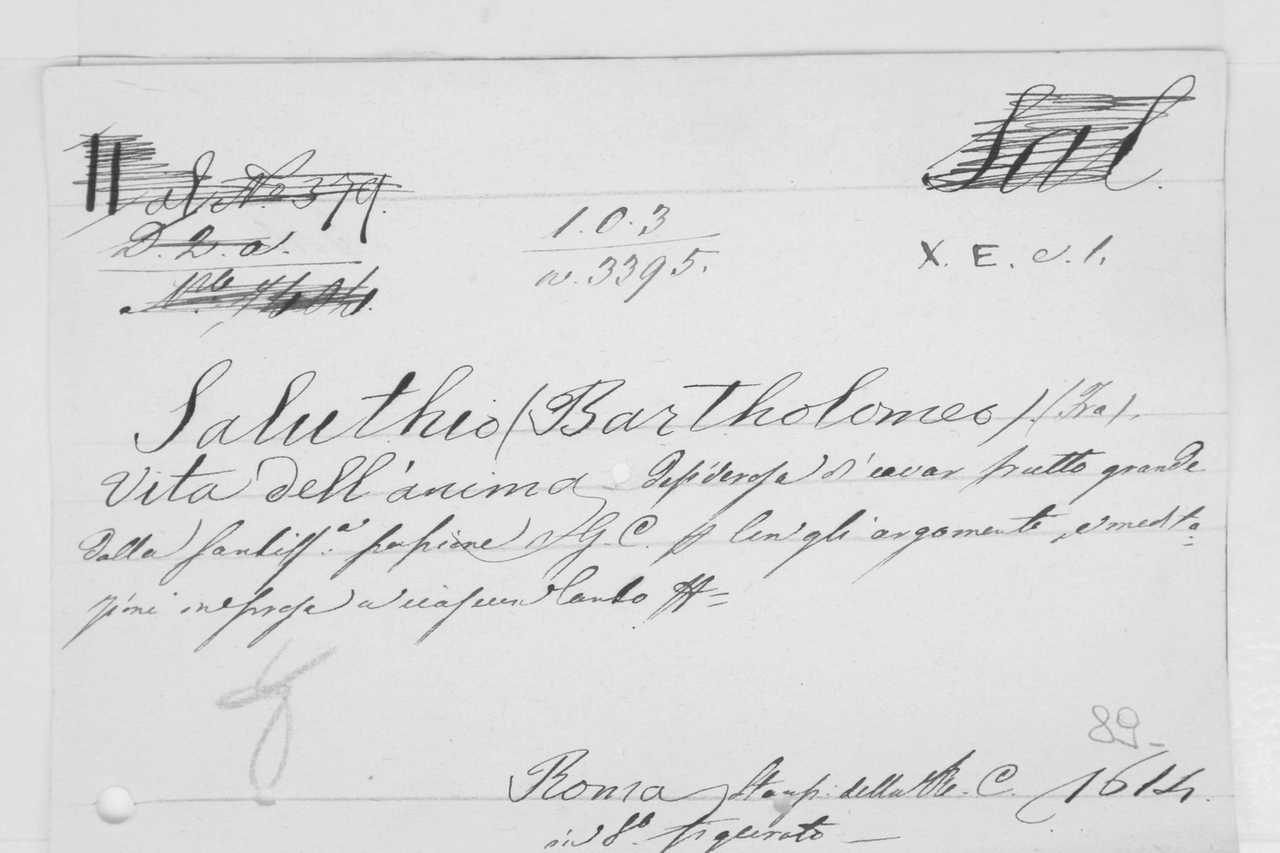 Sal
al No 379.
D. 2. a.
1. 0. 3
n. 3395.
X. E. c. 1.
Saluthio (Bartholomeo) (Fra).
Vita dell'anima desiderosa d'cavar frutto grande
dalla santiss.a passione di G. C. con gli argomenti, e medita=
zioni in prosa a ciascun Canto
89-
Roma Stamp. della R. C. 1614.
in 8.o figurato —